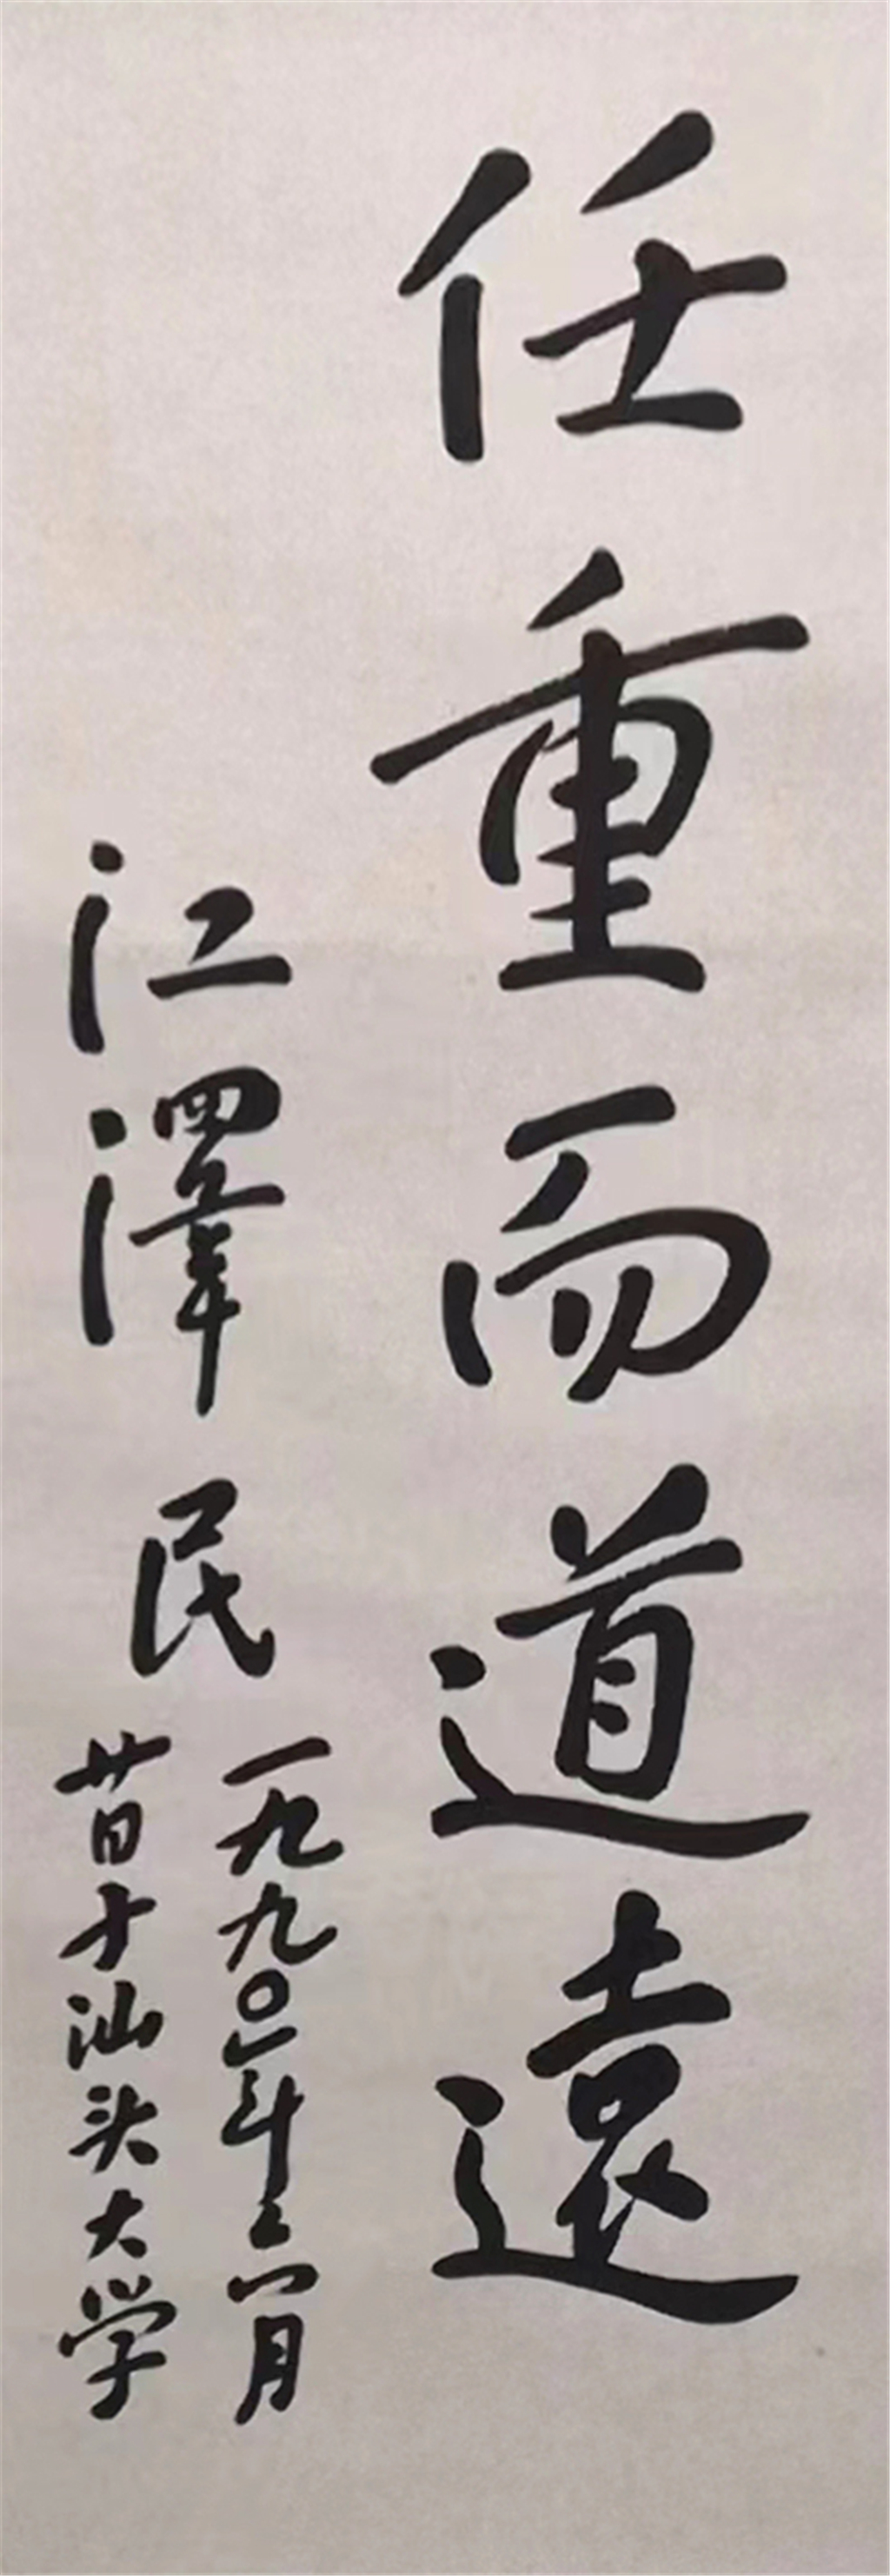 任重而道遠
江澤民
一九九〇年六月
廿日于汕头大学